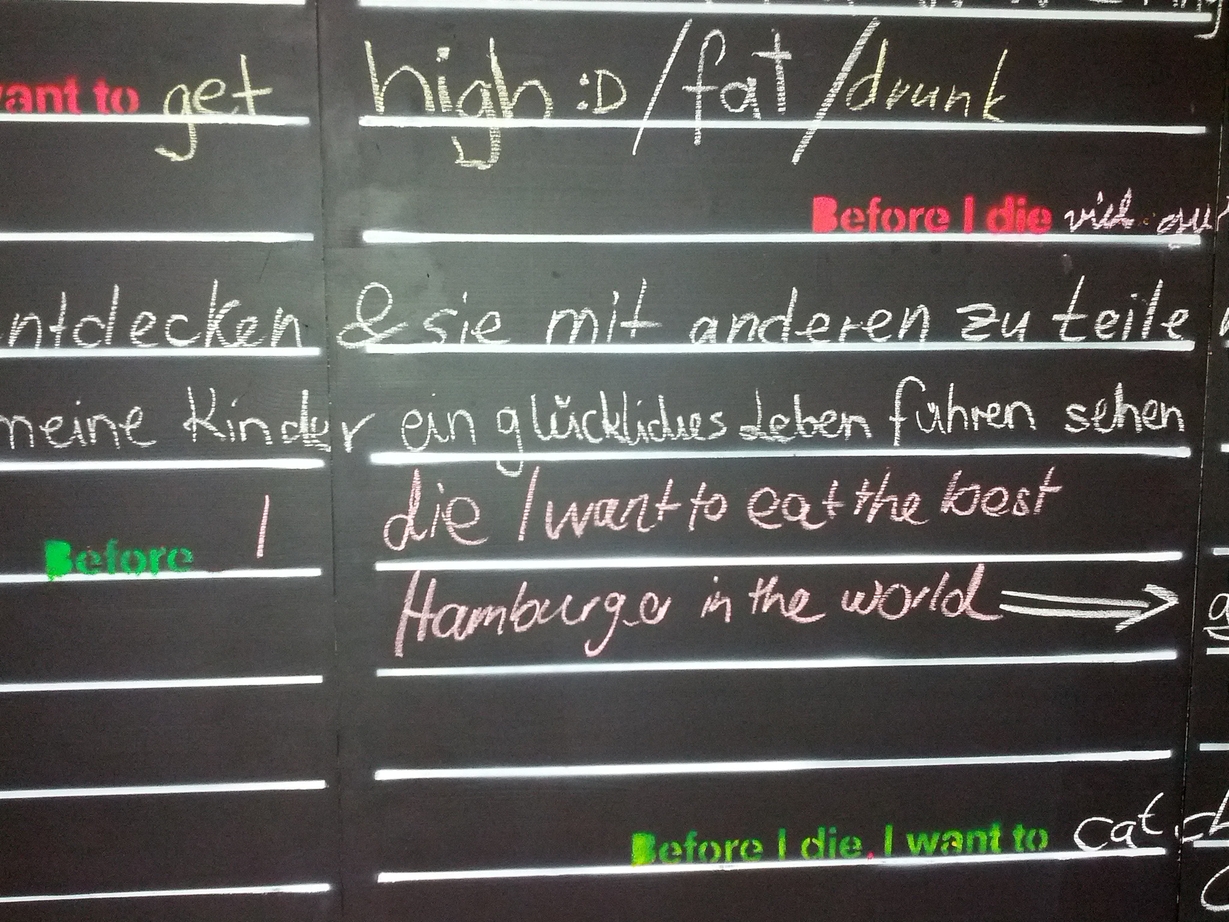 want to get high :D / fat / drunk
Before I die viel gu
ntdecken & sie mit anderen zu teile
meine Kinder ein glückliches Leben führen sehen
Before I die I want to eat the best
Hamburger in the world
Before I die, I want to catch